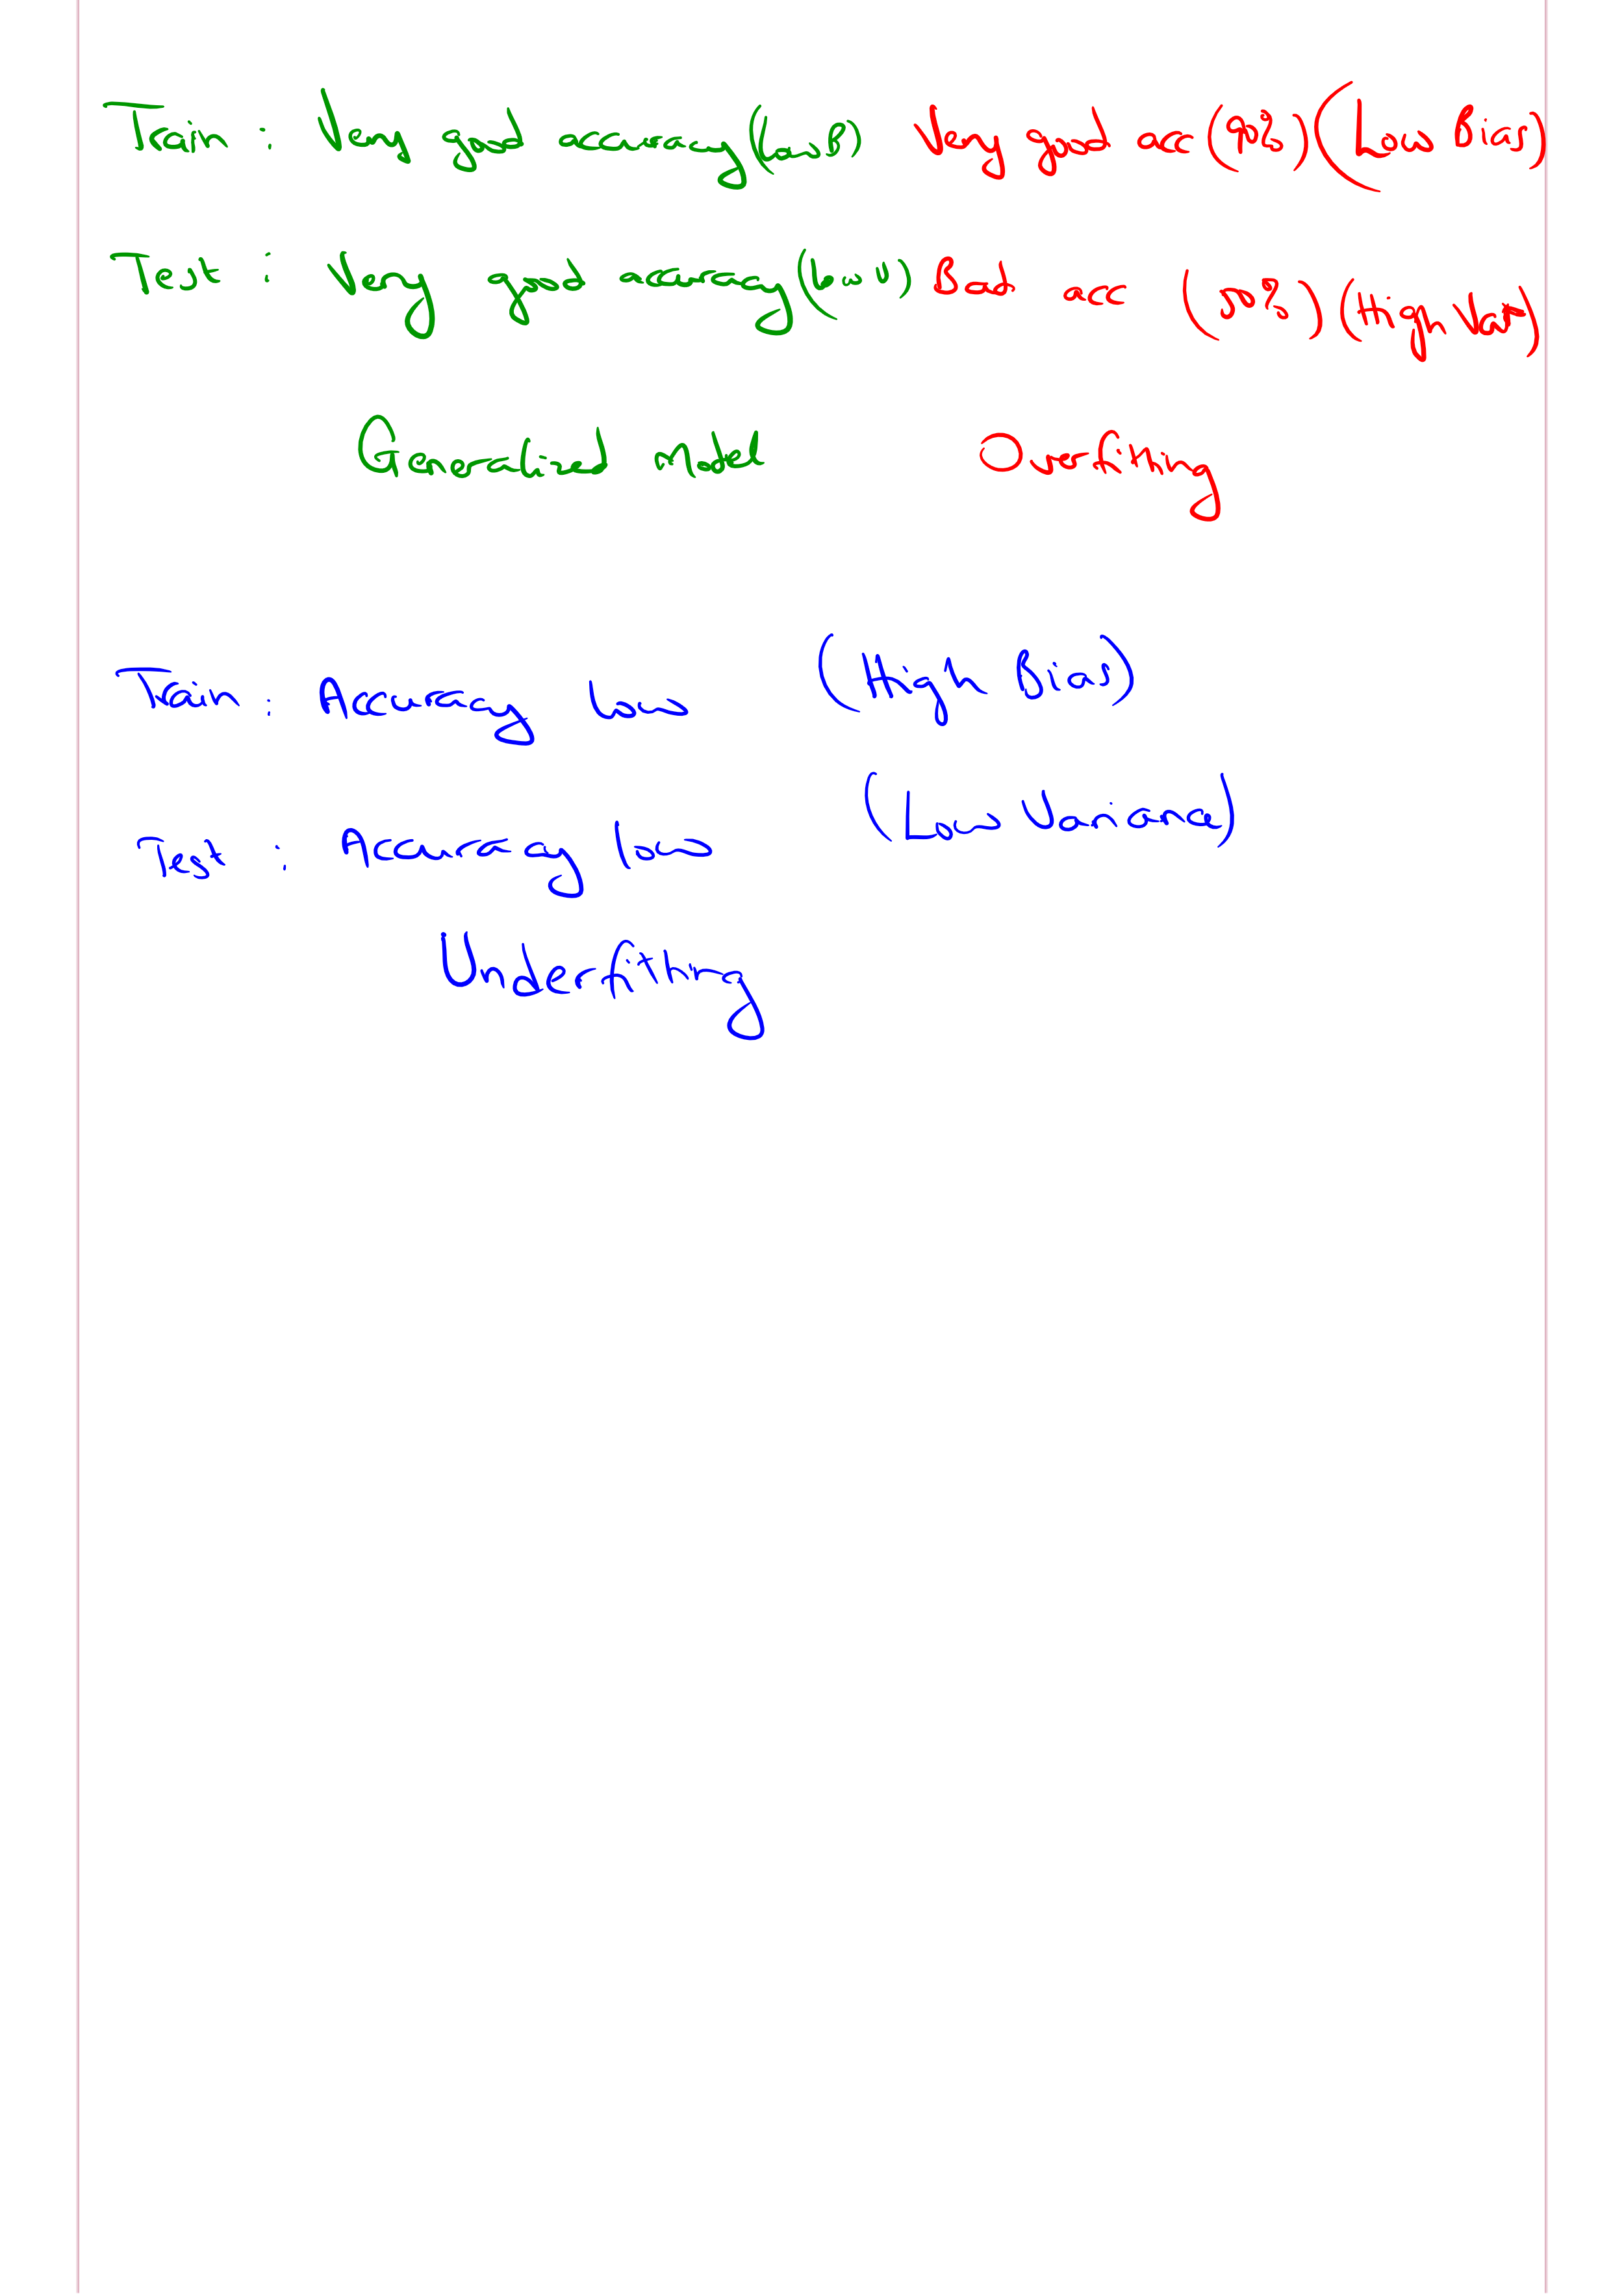 Train : Very good accuracy (Low B) Very good acc (90%) (Low Bias)
Test : Very good accuracy (Low V) Bad acc (50%) (High Var)
Generalized model Overfitting
Train : Accuracy low (High Bias)
Test : Accuracy low (Low Variance)
Underfitting